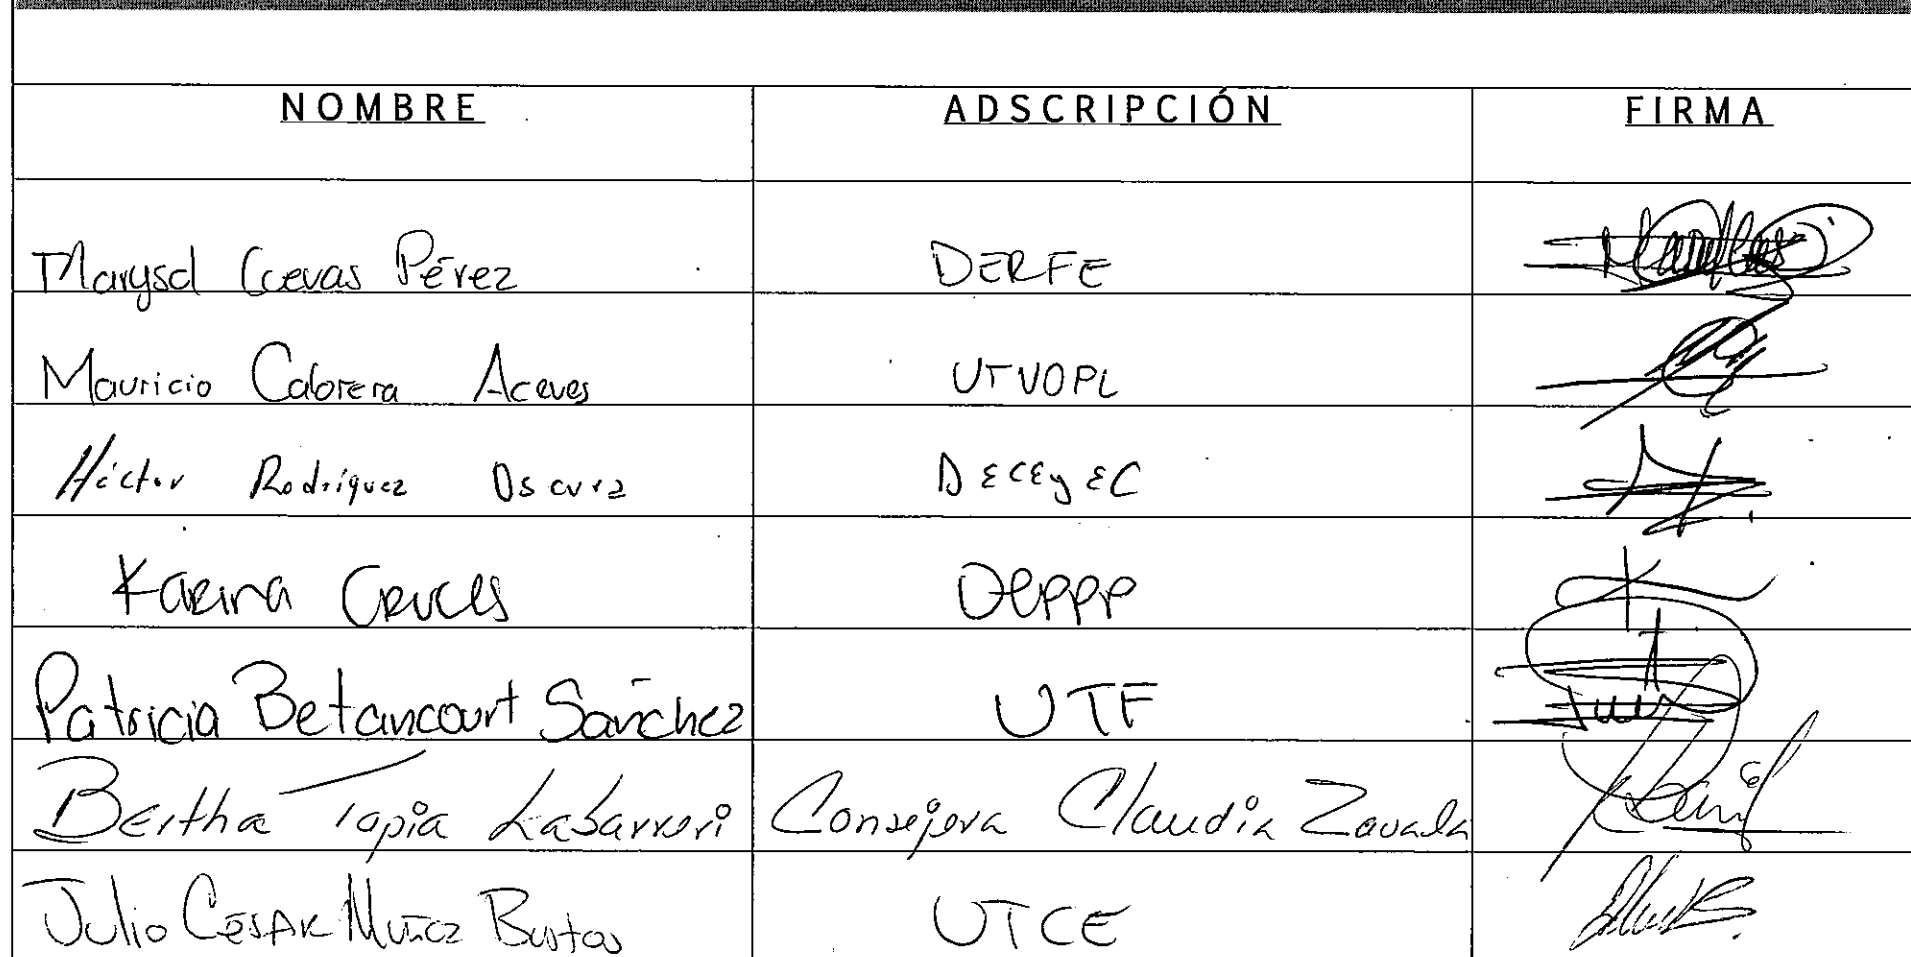 NOMBRE ADSCRIPCIÓN FIRMA
Marysol Cuevas Pérez DERFE
Mauricio Cabrera Aceves UTVOPL
Héctor Rodríguez Oscura DECEyEC
Karina Cruces DEPPP
Patricia Betancourt Sánchez UTF
Bertha Tapia Labarreri Consejera Claudia Zavala
Julio César Muñoz Bustos UTCE